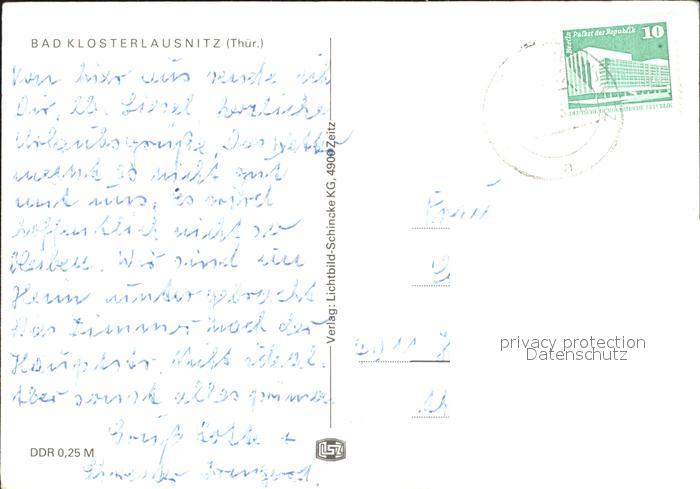 BAD KLOSTERLAUSNITZ (Thür.)
Von hier aus sende ich
Dir, lb. Liesel, herzliche
Urlaubsgrüße. Das Wetter
meint es nicht gut
mit uns. Es wird
hoffentlich nicht so
bleiben. Wir sind im
Heim untergebracht
Das Zimmer nach der
Hauptstr. Nicht ideal.
Aber sonst alles prima.
Gruß Lotte +
DDR 0,25 M
Verlag: Lichtbild-Schincke KG, 4900 Zeitz
Berlin Palast der Republik
10
DEUTSCHE DEMOKRATISCHE REPUBLIK
Frau
privacy protection
Datenschutz